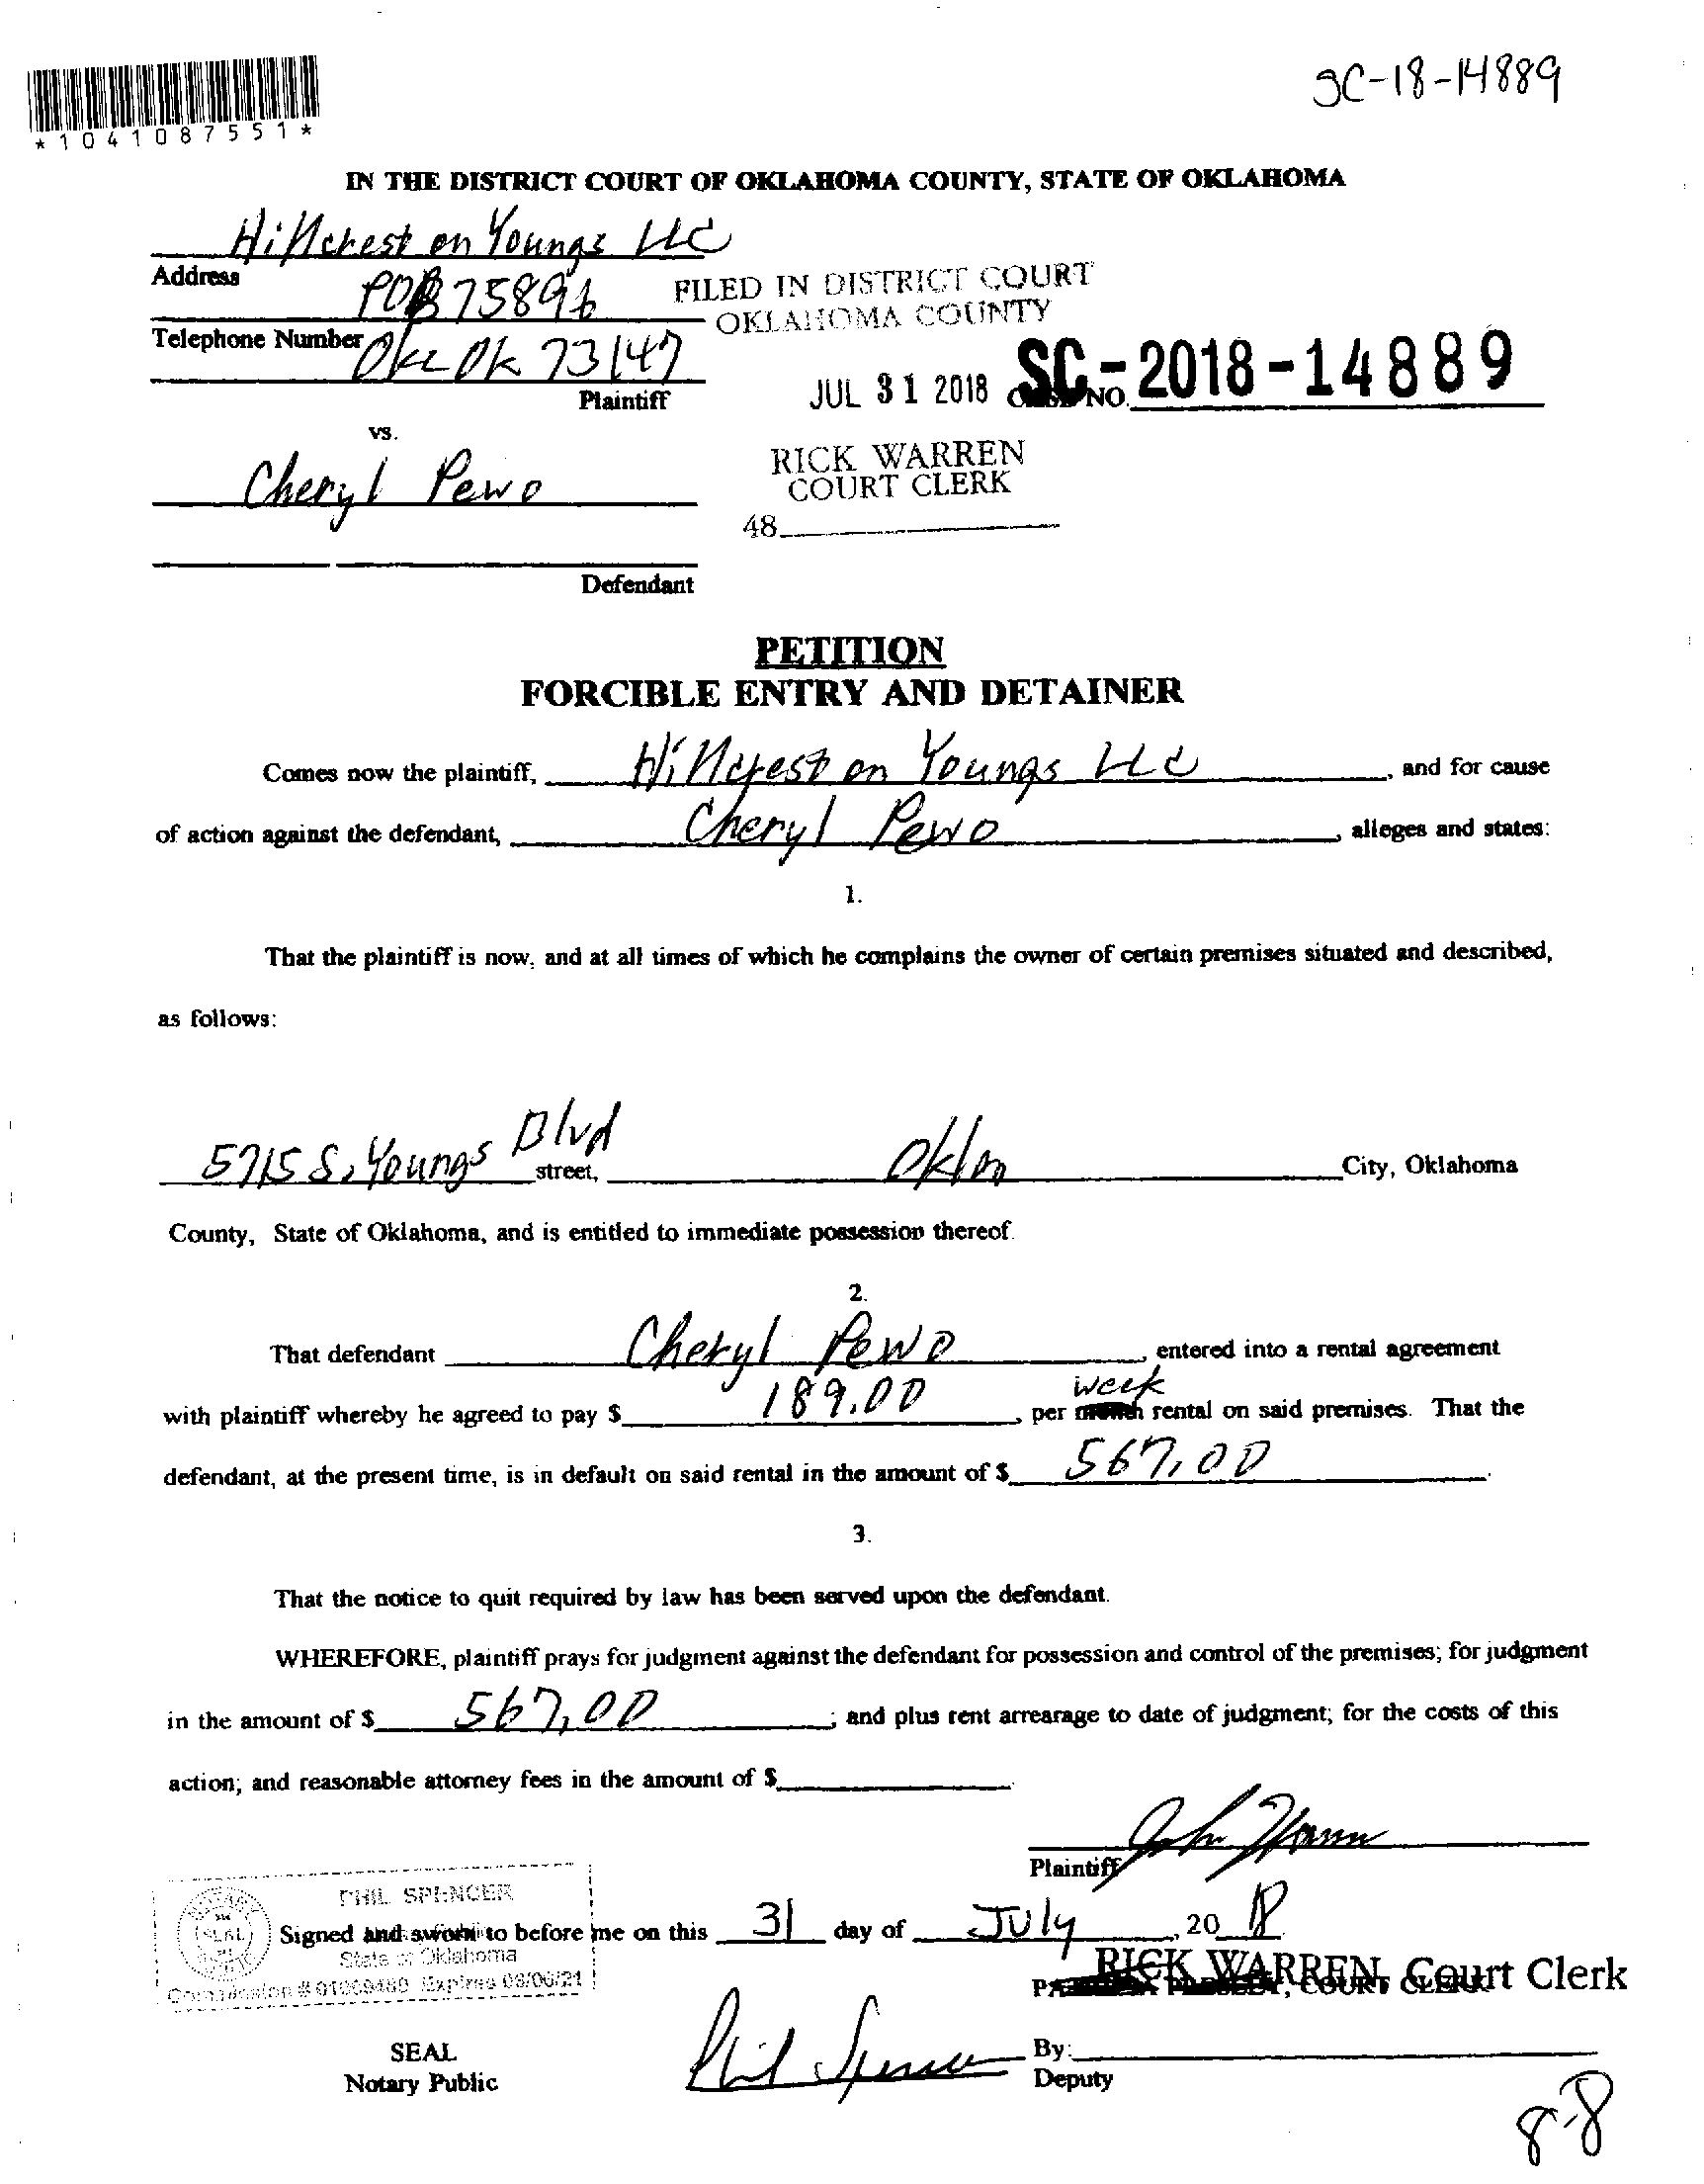 SC-18-14889
*1041087551*
IN THE DISTRICT COURT OF OKLAHOMA COUNTY, STATE OF OKLAHOMA
Hillcrest on Youngs LLC
Address
POB 75896
FILED IN DISTRICT COURT
OKLAHOMA COUNTY
Telephone Number OKC OK 73147
Plaintiff
JUL 31 2018
SC-2018-14889
NO.
vs.
RICK WARREN
COURT CLERK
Cheryl Pewo
48
Defendant
PETITION
FORCIBLE ENTRY AND DETAINER
Comes now the plaintiff, Hillcrest on Youngs LLC, and for cause
of action against the defendant, Cheryl Pewo, alleges and states:
1.
That the plaintiff is now, and at all times of which he complains the owner of certain premises situated and described,
as follows:
5715 S. Youngs Blvd street, Oklm City, Oklahoma
County, State of Oklahoma, and is entitled to immediate possession thereof.
2.
That defendant Cheryl Pewo, entered into a rental agreement
week
with plaintiff whereby he agreed to pay $ 189.00, per month rental on said premises. That the
defendant, at the present time, is in default on said rental in the amount of $ 567.00.
3.
That the notice to quit required by law has been served upon the defendant.
WHEREFORE, plaintiff prays for judgment against the defendant for possession and control of the premises; for judgment
in the amount of $ 567.00; and plus rent arrearage to date of judgment; for the costs of this
action; and reasonable attorney fees in the amount of $
Plaintiff
PHIL SPENCER
Signed and sworn to before me on this 31 day of July, 2018
State of Oklahoma
Commission # 01009480 Expires 08/06/21
RICK WARREN, Court Clerk
COURT CLERK
SEAL
Notary Public
Phil Spencer
By:
Deputy
8-8